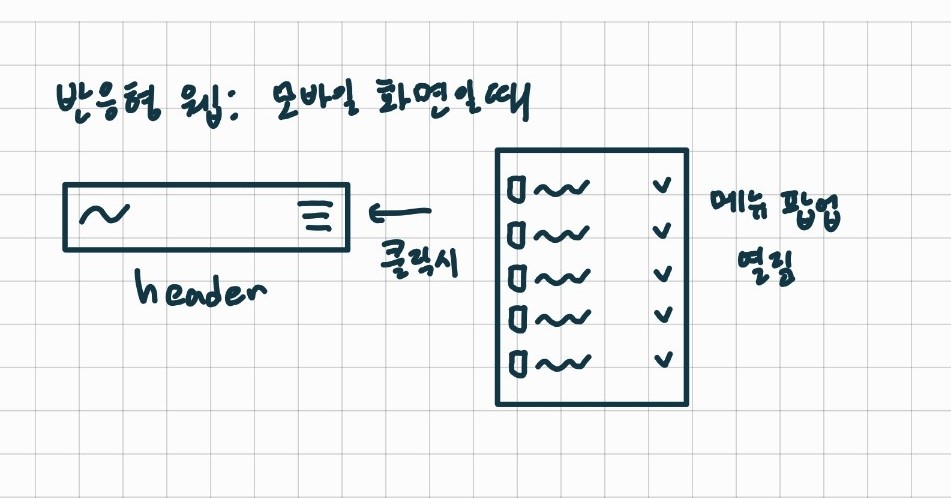 반응형 웹: 모바일 화면일때
header
클릭시
메뉴 팝업
열림